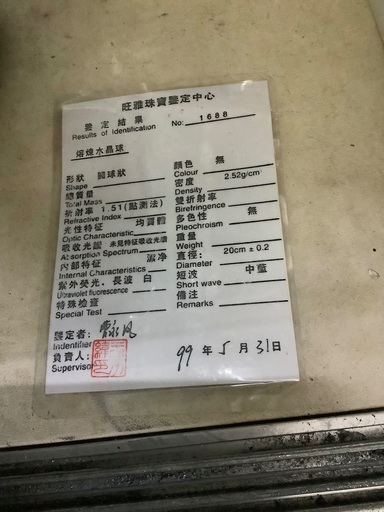 旺雅珠寶鑒定中心
鑒定結果
Results of Identification
No: 1688
熔煉水晶球
形狀 圓球狀
Shape
總質量
Total Mass
折射率 1.51(點測法)
Refractive Index
光性特征 均質體
Optic Characteristic
吸收光譜 未見特征吸收光譜
Absorption Spectrum
內部特征 潔淨
Internal Characteristics
紫外熒光、長波 白
Ultraviolet fluorescence
特殊檢查
Special Test
顏色 無
Colour
密度 2.52g/cm
Density
雙折射率
Birefringence
多色性 無
Pleochroism
重量
Weight
直徑: 20cm ± 0.2
Diameter
短波 中藍
Short wave
備注
Remarks
鑒定者:
Indentifier
負責人:
Supervisor
99 年 5 月 31 日